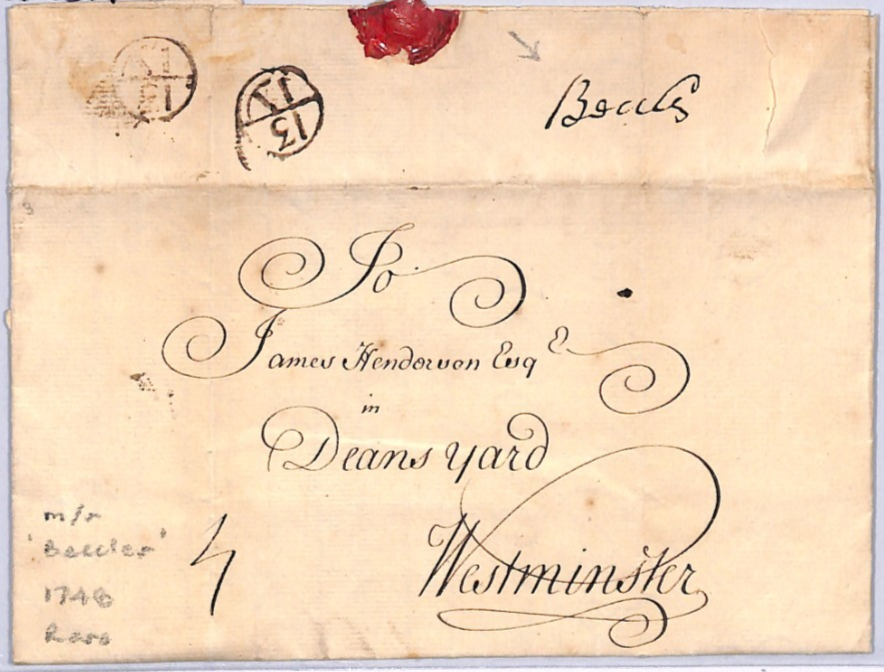 Beccles
To
James Henderson Esqr
in
Deans Yard
Westminster
4
m/s
'Beccles'
1748
Rare